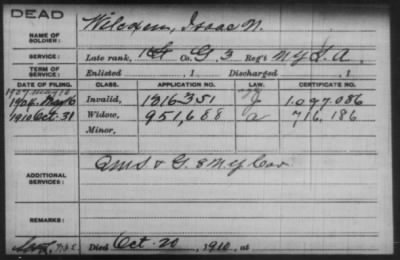 DEAD
NAME OF SOLDIER: Wilcoxen, Isaac N.
SERVICE: Late rank, Co. G. 3 Reg't N.Y.L.A.
TERM OF SERVICE: Enlisted , 1 Discharged , 1
DATE OF FILING. CLASS. APPLICATION NO. LAW. CERTIFICATE NO.
Invalid, 1316351 1.097.086
1910 Oct. 31 Widow, 951,688 a 716,186
Minor,
ADDITIONAL SERVICES: & G. 8 N.Y. Cav
REMARKS:
Died Oct. 20, 1910, at